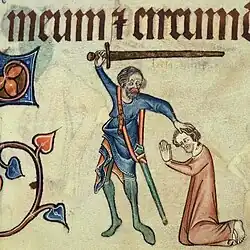 meum ⁊ circum